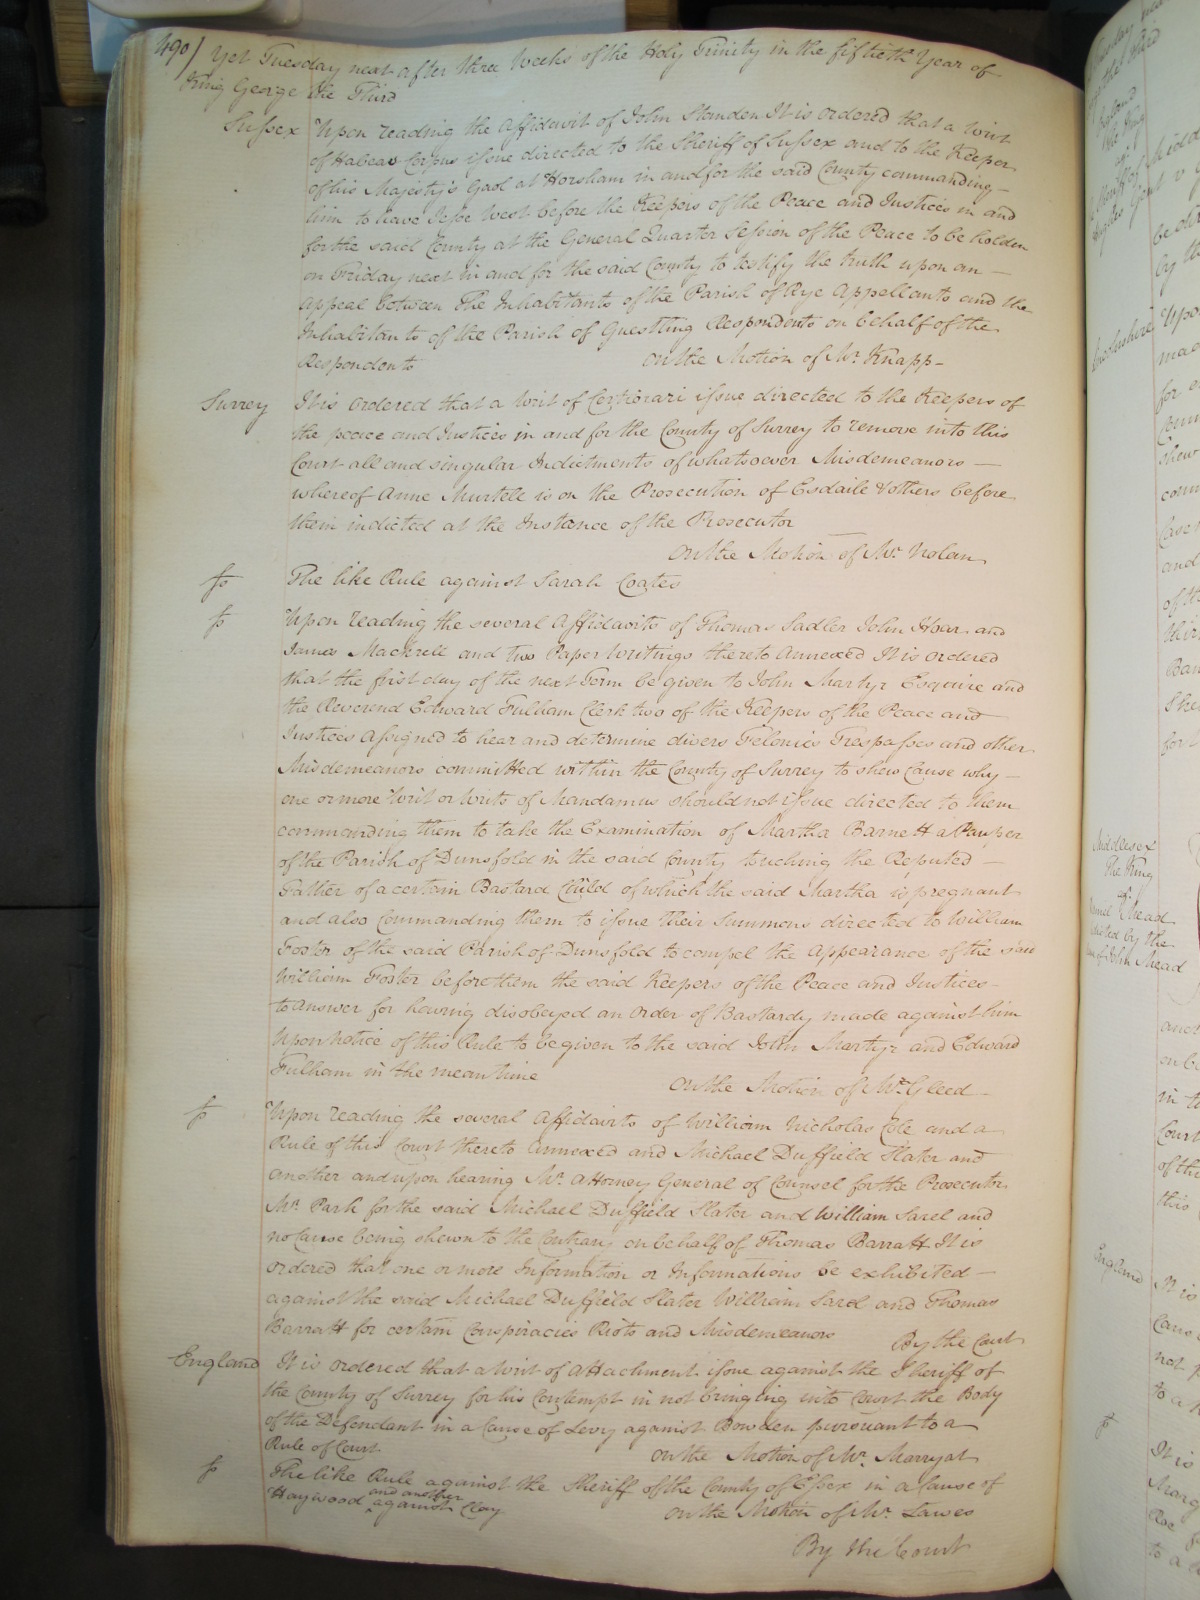 490/ Yet Tuesday next after three Weeks of the Holy Trinity in the fiftieth Year of
King George the Third
Sussex Upon reading the Affidavit of John Standen It is ordered that a Writ
of Habeas Corpus issue directed to the Sheriff of Sussex and to the Keeper
of his Majesty's Gaol at Horsham in and for the said County commanding
him to have Jesse West before the Keepers of the Peace and Justices in and
for the said County at the General Quarter Session of the Peace to be holden
on Friday next in and for the said County to testify the truth upon an
Appeal between The Inhabitants of the Parish of Rye Appellants and the
Inhabitants of the Parish of Guestling Respondents on behalf of the
Respondents On the Motion of Mr. Knapp
Surrey It is Ordered that a Writ of Certiorari issue directed to the Keepers of
the peace and Justices in and for the County of Surrey to remove into this
Court all and singular Indictments of whatsoever Misdemeanors
whereof Anne Murtell is on the Prosecution of Esdaile & others before
them indicted at the Instance of the Prosecutor
On the Motion of Mr. Nolan
The like Rule against Sarah Coates
Upon reading the several Affidavits of Thomas Sadler John Hoar and
James Mackrell and two Paper Writings thereto Annexed It is ordered
that the first day of the next Term be given to John Martyr Esquire and
the Reverend Edward Fulham Clerk two of the Keepers of the Peace and
Justices assigned to hear and determine divers Felonies Trespasses and other
Misdemeanors committed within the County of Surrey to shew Cause why
one or more Writ or Writs of Mandamus should not issue directed to them
commanding them to take the Examination of Martha Barnett a Pauper
of the Parish of Dunsfold in the said County touching the Reputed
Father of a certain Bastard Child of which the said Martha is pregnant
and also Commanding them to issue their Summons directed to William
Foster of the said Parish of Dunsfold to compel the Appearance of the said
William Foster before them the said Keepers of the Peace and Justices
to answer for having disobeyed an Order of Bastardy made against him
Upon notice of this Rule to be given to the said John Martyr and Edward
Fulham in the mean time On the Motion of Mr. Gleed
Upon reading the several Affidavits of William Nicholas Cole and a
Rule of this Court thereto annexed and Michael Duffield Slater and
another and upon hearing Mr. Attorney General of Counsel for the Prosecutor
Mr. Park for the said Michael Duffield Slater and William Sarel and
no Cause being shewn to the Contrary on behalf of Thomas Barratt It is
ordered that one or more Information or Informations be exhibited
against the said Michael Duffield Slater William Sarel and Thomas
Barratt for certain Conspiracies Riots and Misdemeanors By the Court
England It is ordered that a Writ of Attachment issue against the Sheriff of
the County of Surrey for his Contempt in not bringing into Court the Body
of the Defendant in a Cause of Levy against Bowden pursuant to a
Rule of Court On the Motion of Mr. Marryat
The like Rule against the Sheriff of the County of Essex in a Cause of
Haywood and another against Clay On the Motion of Mr. Lawes
By the Court